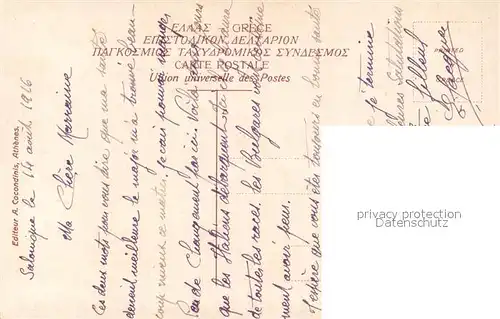 ΕΛΛΑΣ GRÈCE
ΕΠΙΣΤΟΛΙΚΟΝ ΔΕΛΤΑΡΙΟΝ
ΠΑΓΚΟΣΜΙΟΣ ΤΑΧΥΔΡΟΜΙΚΟΣ ΣΥΝΔΕΣΜΟΣ
CARTE POSTALE
Union universelle des Postes
Editeur A. Cocondinis, Athènes.
Salonique le 14 août 1916
Ma Chère Marraine
Ces deux mots pour vous dire que ma santé
devient meilleure le major m'a trouvé beau-
coup mieux ce matin. Je vais pouvoir manger
Peu de Changement par ici. Voilà
que les Italiens débarquent
de toutes les races. les Bulgares
ment avoir peur.
J'espère que vous êtes toujours en bonne santé
je termine
Salutations
filleul
property protection
Datenschutz